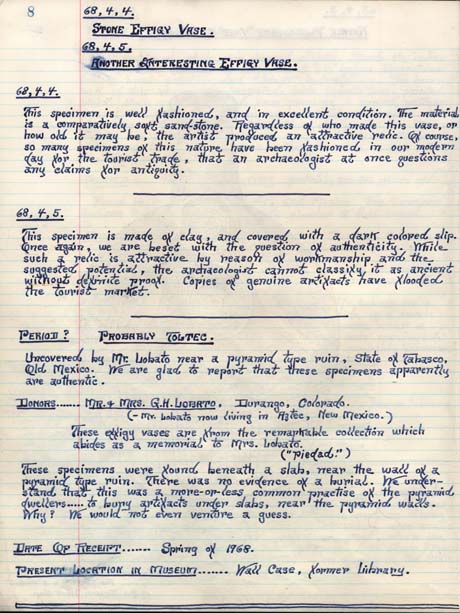 8
68,4,4.
Stone Effigy Vase.
68,4,5.
Another Interesting Effigy Vase.
68,4,4.
This specimen is well fashioned, and in excellent condition. The material
is a comparatively soft sand-stone. Regardless of who made this vase, or
how old it may be, the artist produced an attractive relic. Of course,
so many specimens of this nature have been fashioned in our modern
day for the tourist trade, that an archaeologist at once questions
any claims for antiquity.
68,4,5.
This specimen is made of clay, and covered with a dark colored slip.
Once again, we are beset with the question of authenticity. While
such a relic is attractive by reason of workmanship and the
suggested potential, the archaeologist cannot classify it as ancient
without definite proof. Copies of genuine artifacts have flooded
the tourist market.
Period? Probably Toltec.
Uncovered by Mr. Lobato near a pyramid type ruin, State of Tabasco,
Old Mexico. We are glad to report that these specimens apparently
are authentic.
Donors...... Mr. & Mrs. G.H. Lobato. Durango, Colorado.
(- Mr. Lobato now living in Aztec, New Mexico.)
These effigy vases are from the remarkable collection which
abides as a memorial to Mrs. Lobato.
("Piedad.")
These specimens were found beneath a slab, near the wall of a
pyramid type ruin. There was no evidence of a burial. We under-
stand that this was a more-or-less common practise of the pyramid
dwellers.... to bury artifacts under slabs, near the pyramid walls.
Why? We would not even venture a guess.
Date Of Receipt....... Spring of 1968.
Present Location in Museum....... Wall Case, former Library.